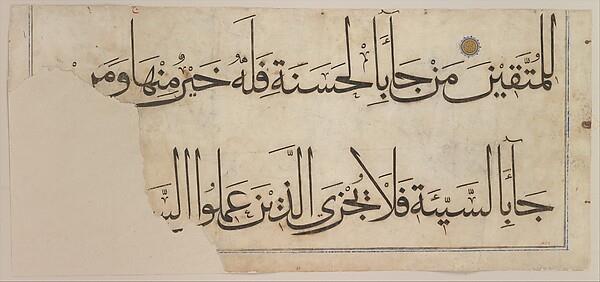 للمُتَّقِينَ مَنْ جَآءَ بِالْحَسَنَةِ فَلَهُ خَيْرٌ مِنْهَا وَمَنْ
جَآءَ بِالسَّيِّئَةِ فَلَا يُجْزَى الَّذِينَ عَمِلُوا